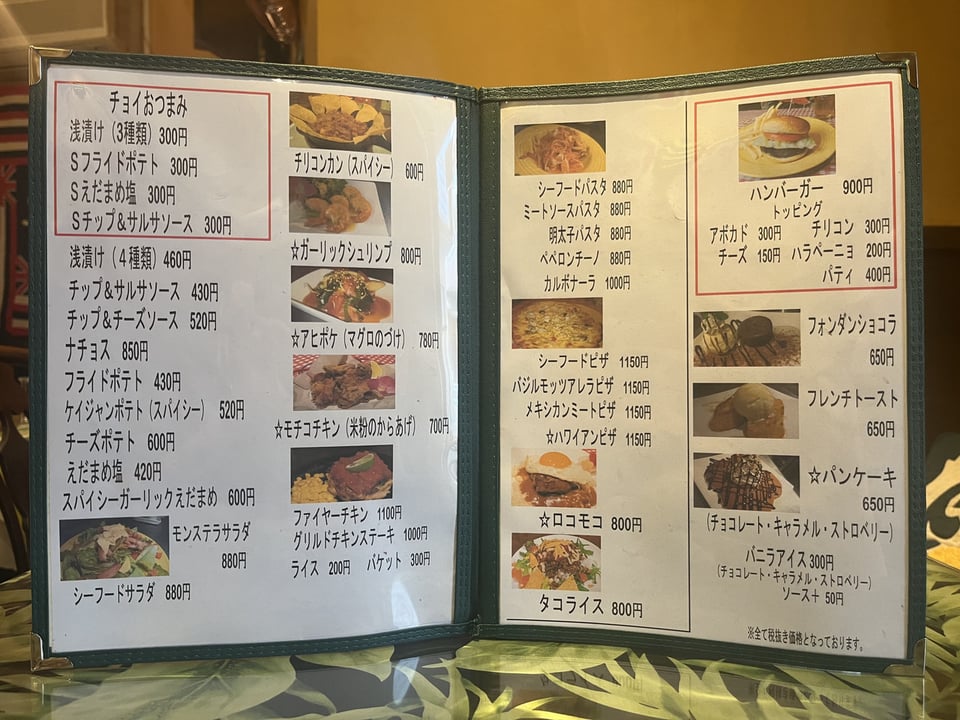 チョイおつまみ
浅漬け（3種類）300円
Sフライドポテト 300円
Sえだまめ塩 300円
Sチップ＆サルサソース 300円
浅漬け（４種類）460円
チップ＆サルサソース 430円
チップ＆チーズソース 520円
ナチョス 850円
フライドポテト 430円
ケイジャンポテト（スパイシー） 520円
チーズポテト 600円
えだまめ塩 420円
スパイシーガーリックえだまめ 600円
モンステラサラダ
880円
シーフードサラダ 880円
チリコンカン（スパイシー） 600円
☆ガーリックシュリンプ 800円
☆アヒポケ（マグロのづけ） 780円
☆モチコチキン（米粉のからあげ） 700円
ファイヤーチキン 1100円
グリルドチキンステーキ 1000円
ライス 200円 バケット 300円
シーフードパスタ 880円
ミートソースパスタ 880円
明太子パスタ 880円
ペペロンチーノ 880円
カルボナーラ 1000円
シーフードピザ 1150円
バジルモッツアレラピザ 1150円
メキシカンミートピザ 1150円
☆ハワイアンピザ 1150円
☆ロコモコ 800円
タコライス 800円
ハンバーガー 900円
トッピング
アボカド 300円 チリコン 300円
チーズ 150円 ハラペーニョ 200円
パティ 400円
フォンダンショコラ
650円
フレンチトースト
650円
☆パンケーキ
650円
（チョコレート・キャラメル・ストロベリー）
バニラアイス300円
（チョコレート・キャラメル・ストロベリー）
ソース＋ 50円
※全て税抜き価格となっております。